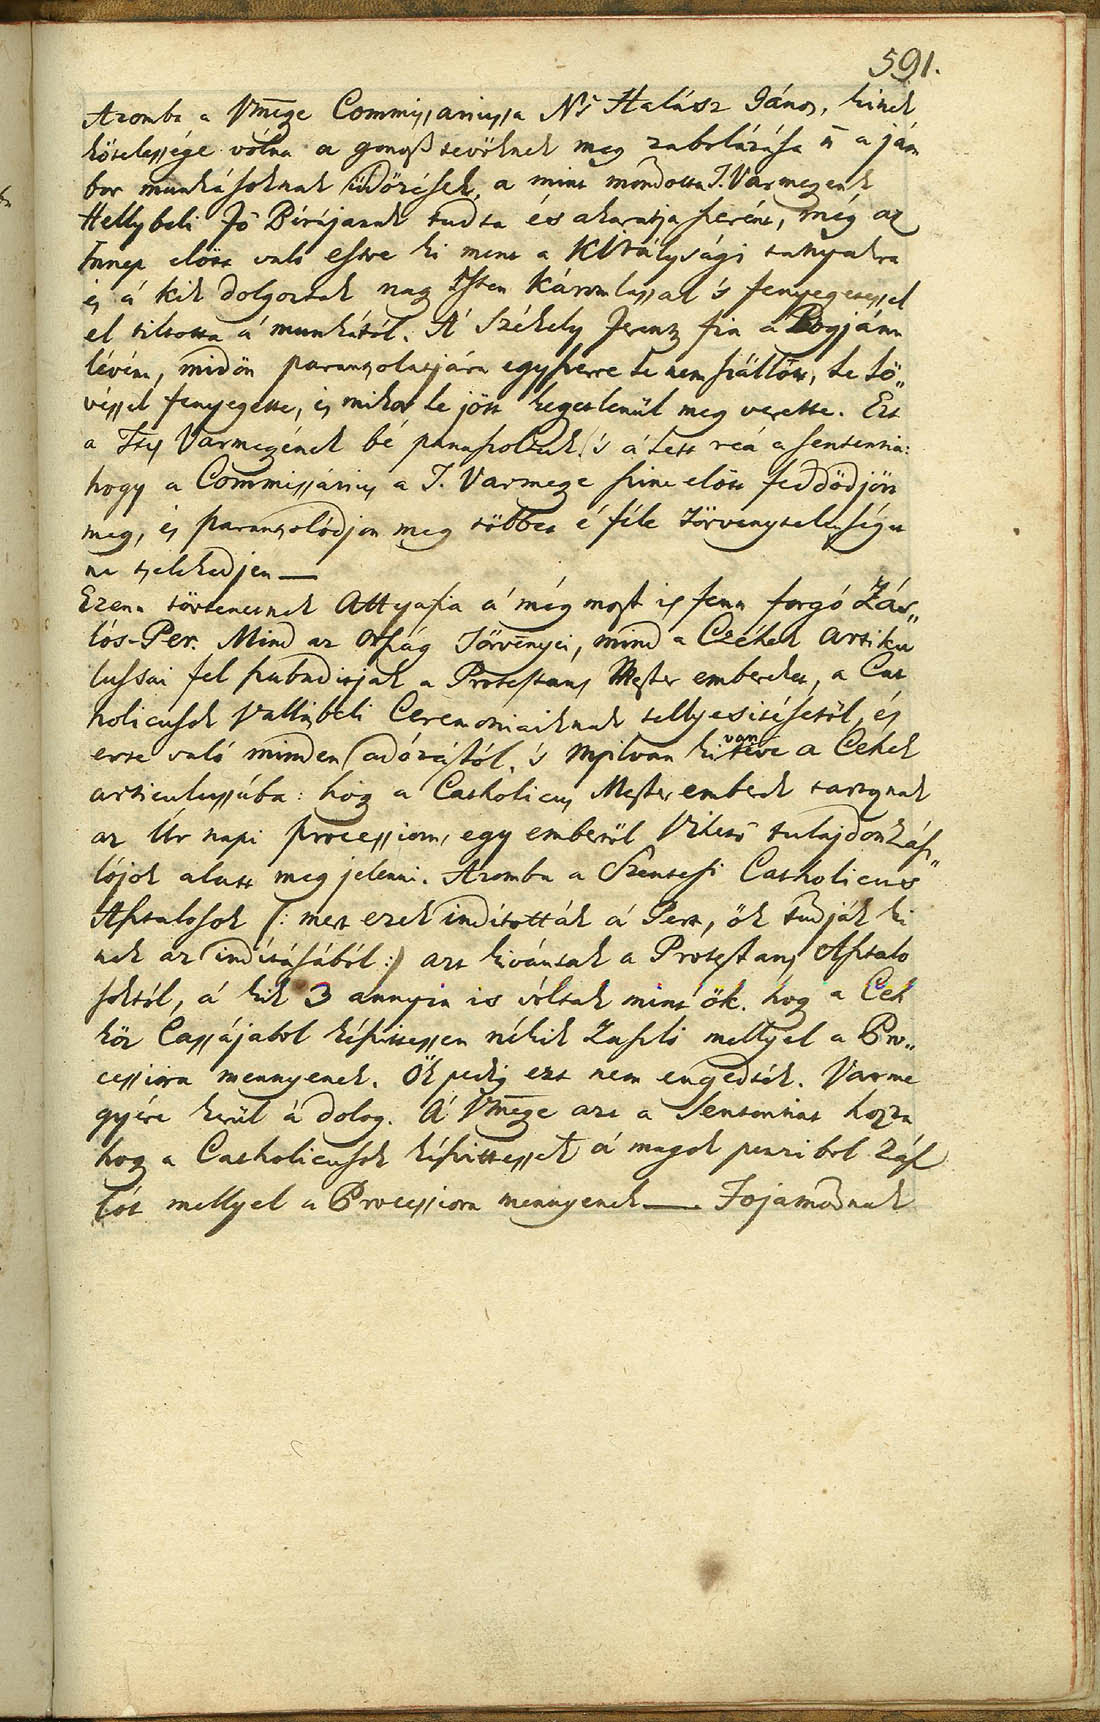 591.
Azomba a Vmege Commissariussa Ns Halász János, kinek
kötelessége vólna a gonosz tevöknek meg zabolázása 's a jám
bor munkásoknak a mint mondotta T. Varmegenek
Hellybeli Fö Birájanak tudta és akaratja szerént, még az
Innep elött való estve ki ment a Királysági tanyakra
és á kik dolgoztak nagy Isten káromlassal 's fenyegetessel
el tiltotta á munkától. A' Székely Ferentz fia a Bogján
lévén, midön parantsolatjára egyszerre le nem szállött, le lö„
véssel fenyegette, és mikor le jött kegyetlenül meg verette. Ezt
a Ttes Varmegének bé panaszoltuk 's á lett reá a sententia:
hogy a Commissárius a T. Varmege szine elött feddödjön
meg, és parantsolódjon meg többet é féle törvenytelenséget
ne tselekedjen —
Ezenn történetnek Attyafia á még most is fenn forgó Zász„
lós-Per. Mind az Ország Törvényei, mind a Czéhek Artiku
lussai fel szabadítják a Protestans Mester embereket, a Cat
holicusok Vallásbeli Ceremoniaiknak tellyesitésétöl, és
erre való minden adózástól, 's nyilvan ki van téve a Cehek
articulussába: hogy a Catholicus Mester emberek tartoznak
az Úr napi processiora, egy embertöl vitetö tulajdon Zász„
lójok alatt meg jelenni. Azomba a Szentesi Catholicus
Asztalosok (: mert ezek indították á Pert, ök tudják ki
nek az indításából :) azt kivánták a Protestans Asztalo
soktól, á kik 3 annyin is vóltak mint ök. hogy a Ceh
köz Cassájabol készittessen nékik Zászló mellyel a Pro„
cessiora mennyenek. Ök pedig ezt nem engedték. Varme
gyére kerül á dolog. Á Vmege azt a Sententiat hozza
hogy a Catholicusok készittessek á magok penzibol Zász
lót mellyel a Processiora mennyenek —. Fojamodnak